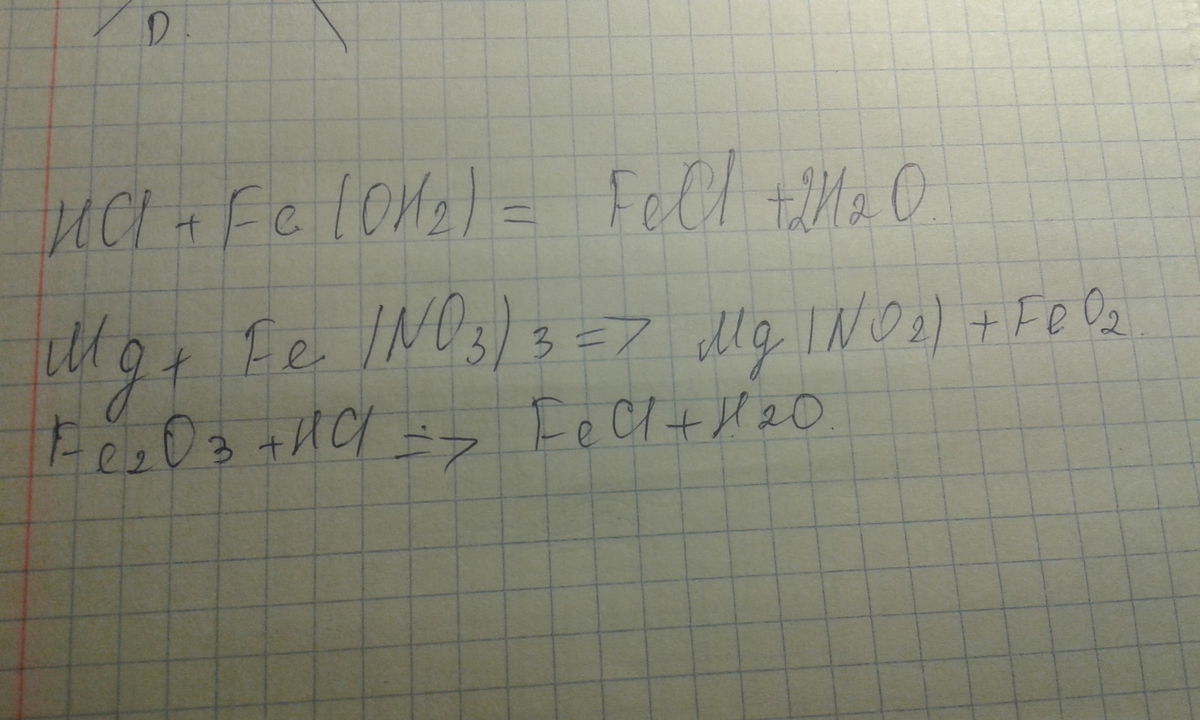 D.
HCl + Fe (OH₂) = FeCl + 2H₂O.
Mg + Fe (NO₃)₃ => Mg (NO₂) + FeO₂.
Fe₂O₃ + HCl => FeCl + H₂O.